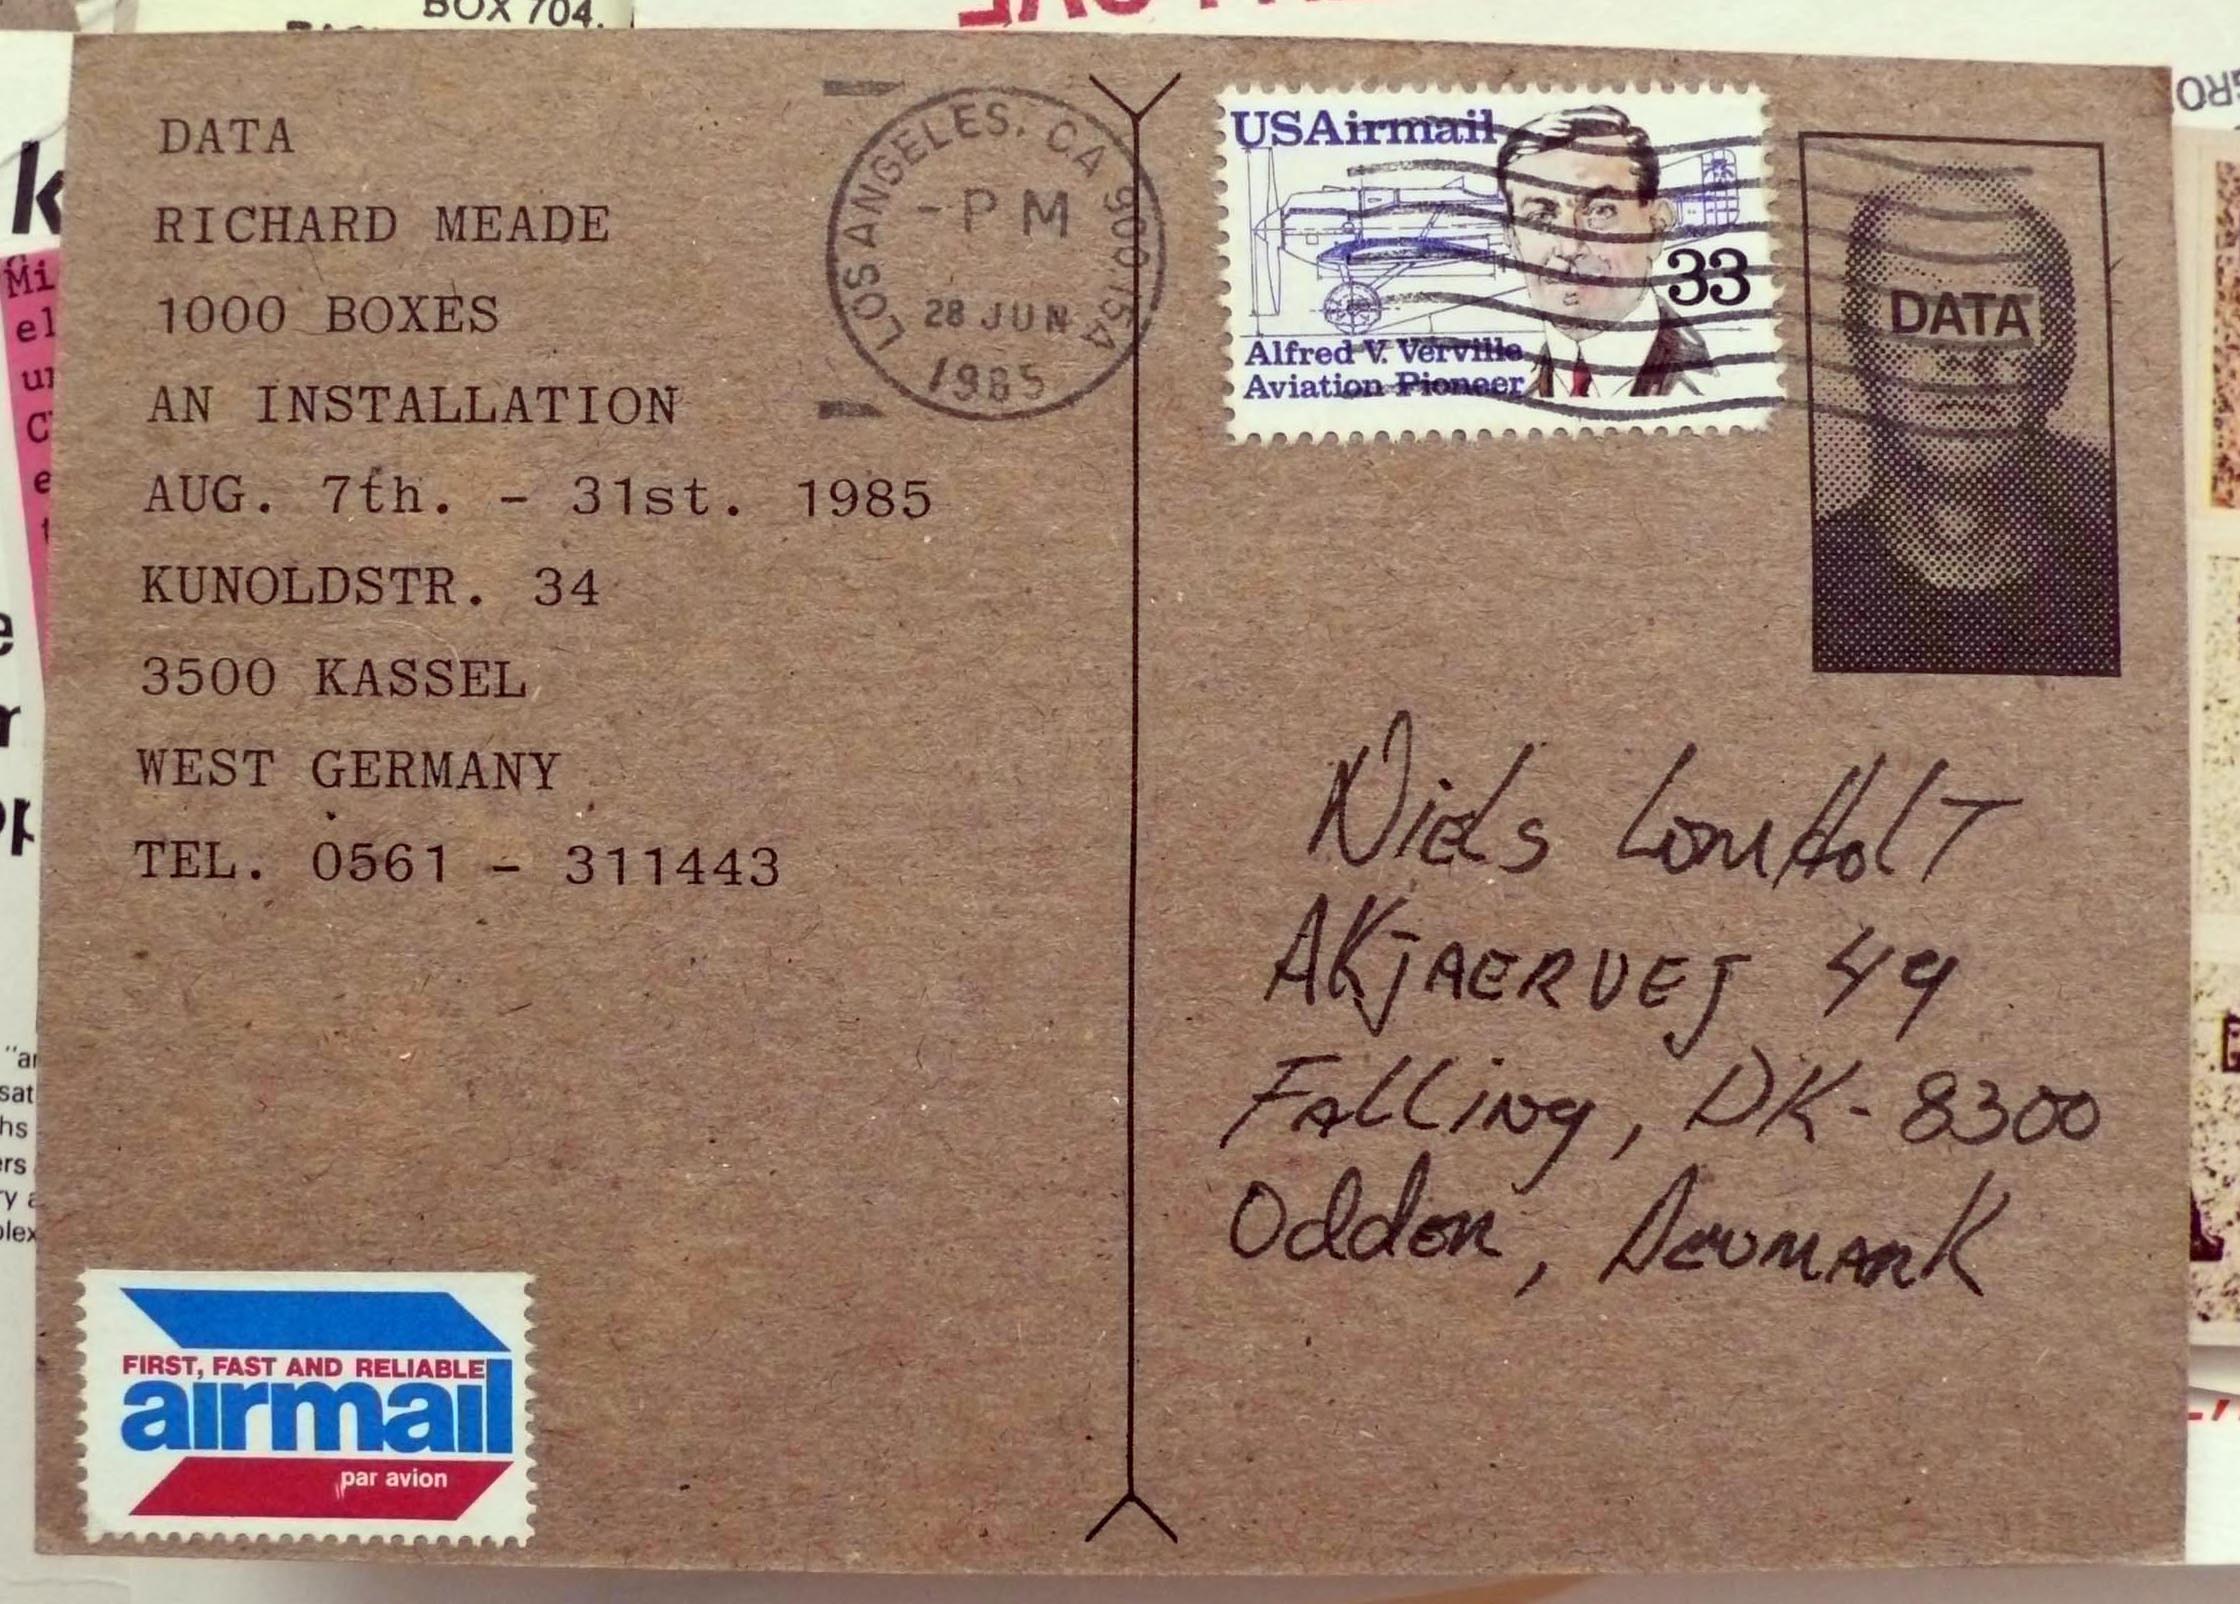 BOX 704.
DATA
RICHARD MEADE
1000 BOXES
AN INSTALLATION
AUG. 7th. - 31st. 1985
KUNOLDSTR. 34
3500 KASSEL
WEST GERMANY
TEL. 0561 - 311443
LOS ANGELES, CA 900 154
- PM
28 JUN
1985
USAirmail
33
Alfred V. Verville
Aviation Pioneer
DATA
Niels LomHolT
AKJAERVEJ 49
Falling, DK-8300
Oddon, Denmark
FIRST, FAST AND RELIABLE
airmail
par avion